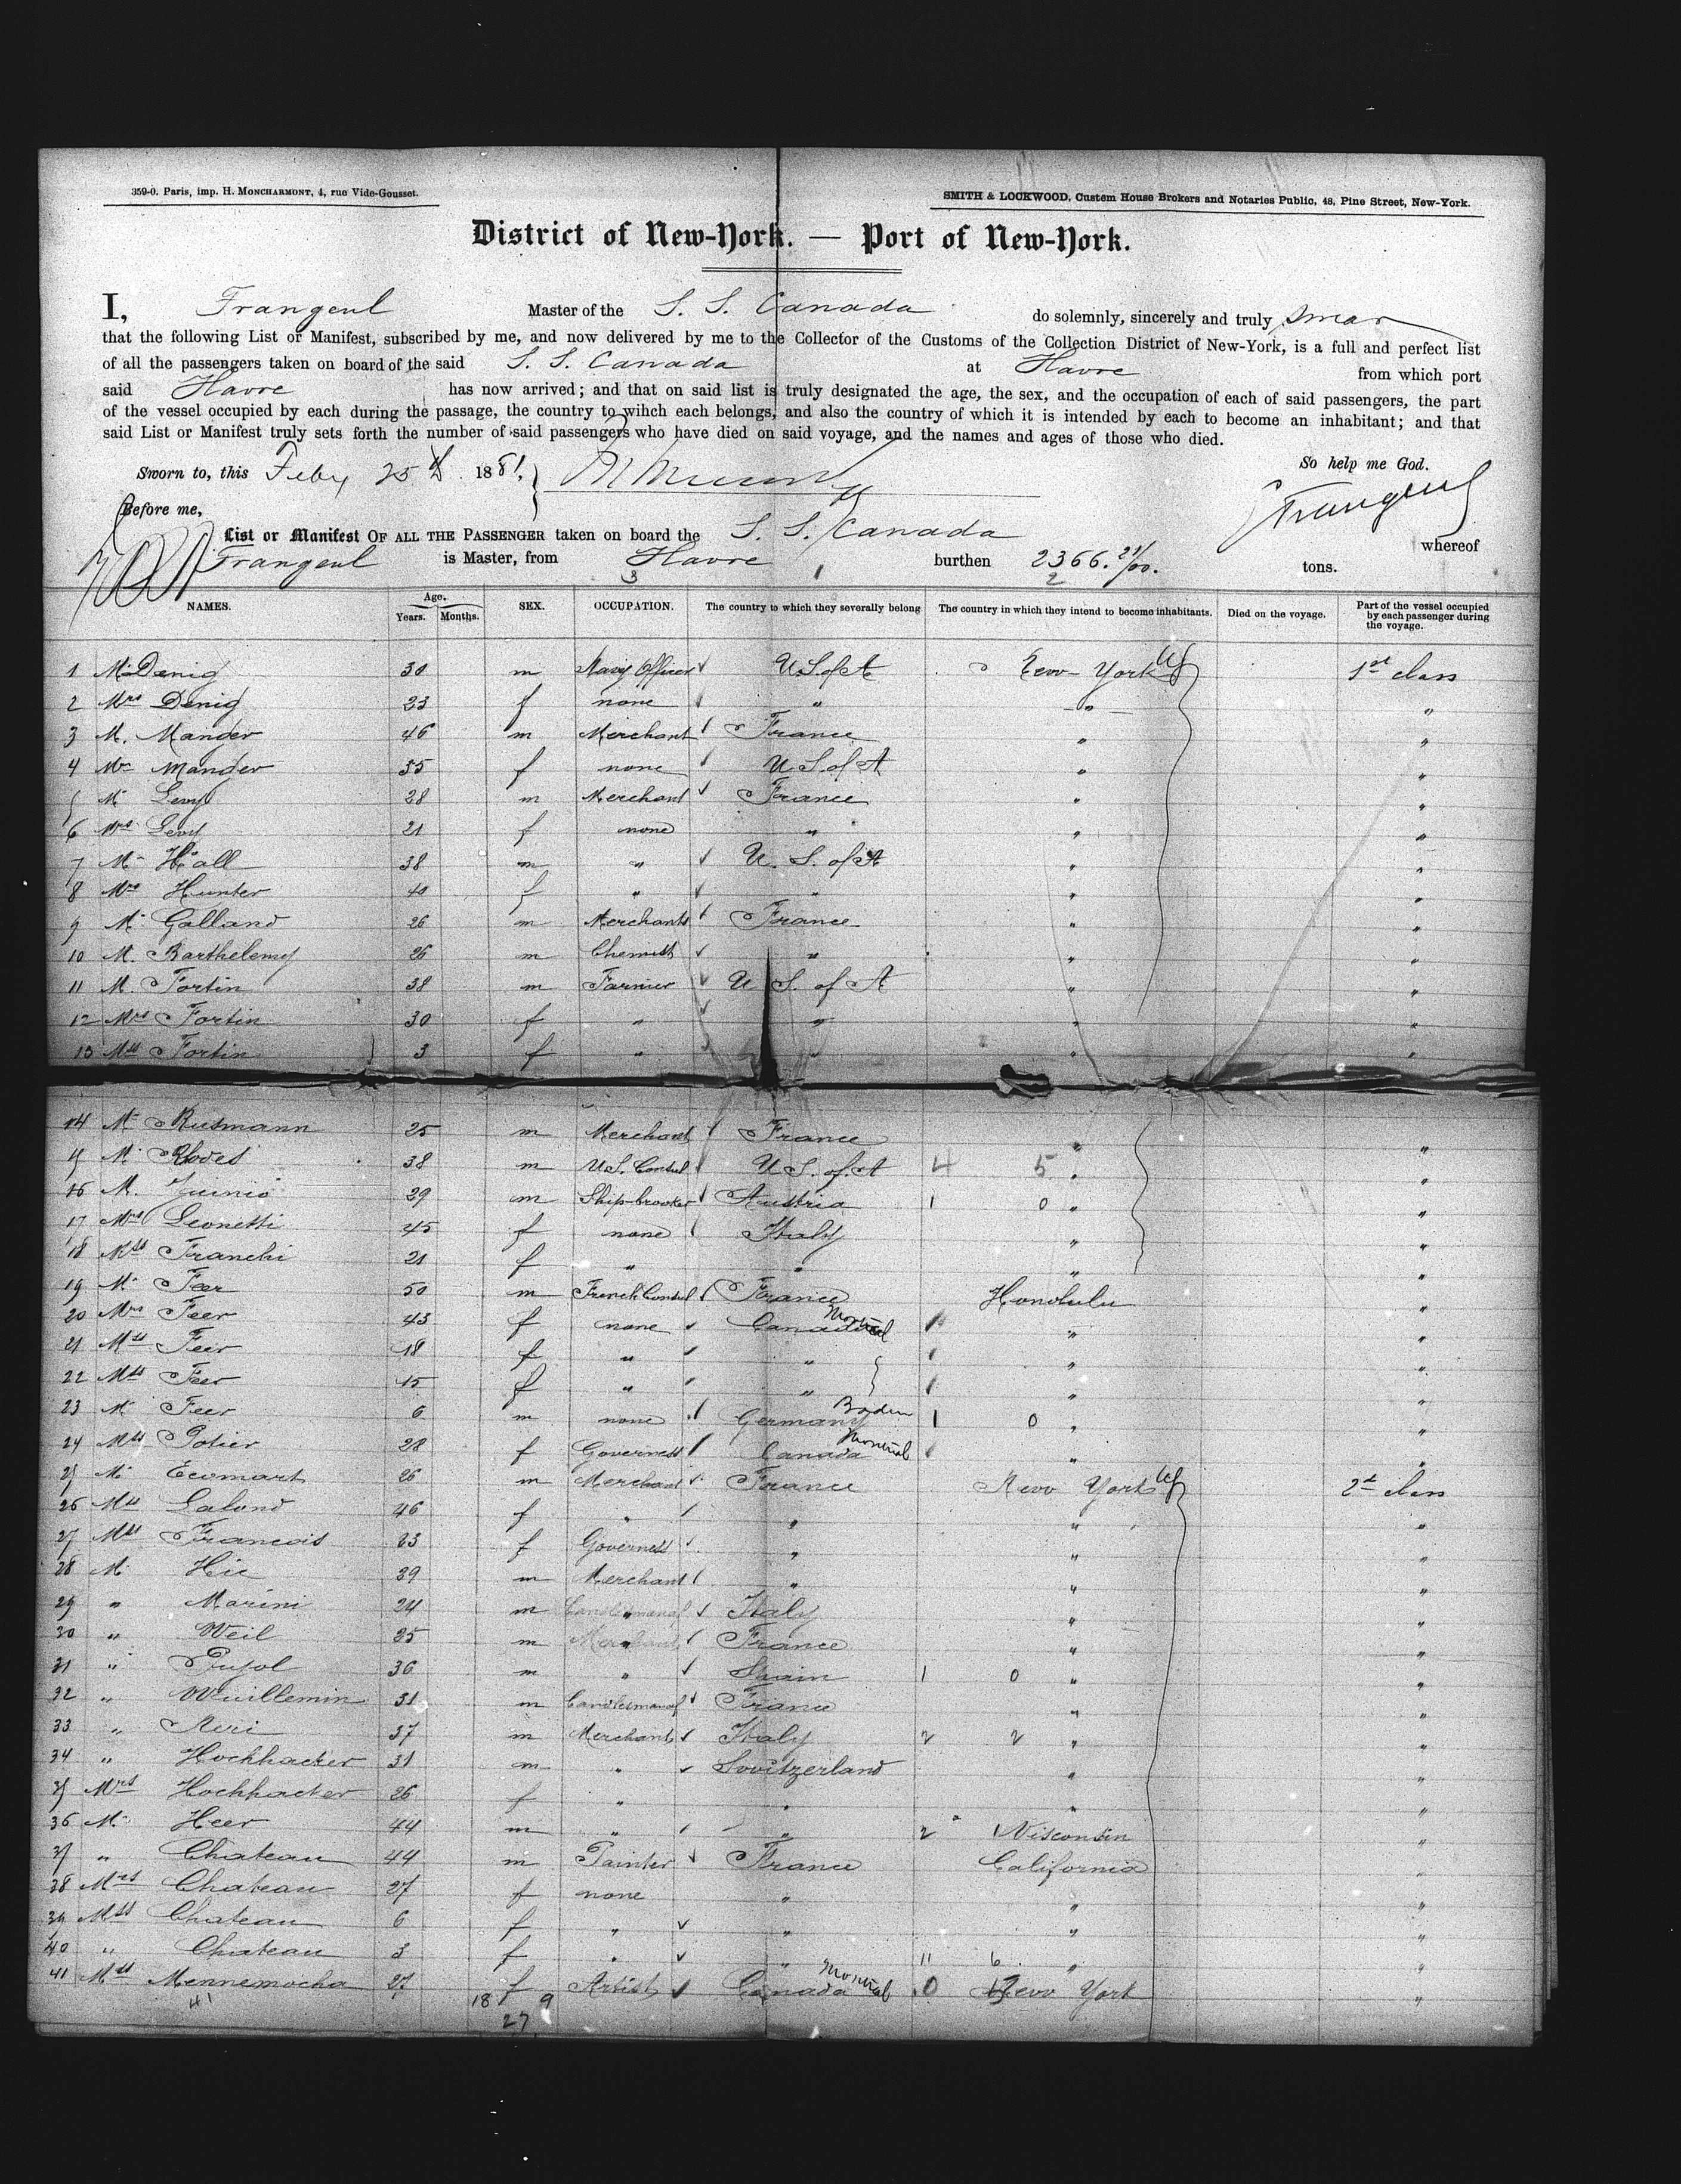 359-0. Paris, imp. H. MONCHARMONT, 4, rue Vide-Gousset.
SMITH & LOCKWOOD, Custom House Brokers and Notaries Public, 48, Pine Street, New-York.
District of New-York. — Port of New-York.
I, Frangeul Master of the S. S. Canada do solemnly, sincerely and truly swear
that the following List or Manifest, subscribed by me, and now delivered by me to the Collector of the Customs of the Collection District of New-York, is a full and perfect list
of all the passengers taken on board of the said S. S. Canada at Havre from which port
said Havre has now arrived; and that on said list is truly designated the age, the sex, and the occupation of each of said passengers, the part
of the vessel occupied by each during the passage, the country to wihch each belongs, and also the country of which it is intended by each to become an inhabitant; and that
said List or Manifest truly sets forth the number of said passengers who have died on said voyage, and the names and ages of those who died.
Sworn to, this Feby 25th 1881,
So help me God.
Before me,
Frangeul
List or Manifest OF ALL THE PASSENGER taken on board the S. S. Canada whereof
Frangeul is Master, from Havre burthen 2366. 21/00. tons.
3 1 2
NAMES. Age. Years. Months. SEX. OCCUPATION. The country to which they severally belong The country in which they intend to become inhabitants. Died on the voyage. Part of the vessel occupied by each passenger during the voyage.
1 M. Denig 30 m Navy Officer U.S. of A New-York 1st class
2 Mrs Denig 23 f none " " "
3 M. Mander 46 m Merchant France " "
4 Mrs Mander 35 f none U S. of A " "
5 M. Levy 28 m Merchant France " "
6 Mrs Levy 21 f none " " "
7 M. Hall 38 m " U. S. of A " "
8 Mrs Hunter 40 f " " " "
9 M. Galland 26 m Merchants France " "
10 M. Barthelemy 26 m Chemist " " "
11 M. Fortin 38 m Farmer U S. of A " "
12 Mrs Fortin 30 f " " " "
13 Mss Fortin 3 f " " " "
14 M. Rusmann 25 m Merchant France " "
15 M. Rhodes 38 m U.S. Consul U S. of A 4 5 " "
16 M. 29 m Ship-brooker Austria 1 0 " "
17 Mrs Leonetti 45 f none Italy " "
18 Mss Franchi 21 f " " " "
19 M. Feer 50 m French Consul France Honolulu "
20 Mrs Feer 43 f none Canada Montreal " "
21 Mss Feer 18 f " " " "
22 Mss Feer 15 f " " " "
23 M. Feer 6 m none Germany Baden 1 0 " "
24 Mss Potier 28 f Governess Canada Montreal " "
25 M. Ecomart 26 m Merchant France New York 2d class
26 Mss Lalond 46 f " " " "
27 Mss Francois 23 f Governess " " "
28 M. Hic 39 m Merchant " " "
29 " Marini 24 m " Italy " "
30 " Weil 25 m " France " "
31 " Pujol 36 m " Spain 1 0 " "
32 " Wuillemin 31 m Candlesmanaf France " "
33 " Neri 37 m Merchant Italy 2 2 " "
34 " Hochhacker 31 m " Sowitzerland " "
35 Mrs Hochhacker 26 f " " " "
36 M. Heer 44 m " " 2 Wisconsin "
37 " Chateau 44 m Painter France California "
38 Mrs Chateau 27 f none " " "
39 Mss Chateau 6 f " " " "
40 " Chateau 3 f " " 11 6 " "
41 Mss Mennemocha 27 f Artist Canada Montreal 0 New York "
41 18 9
27